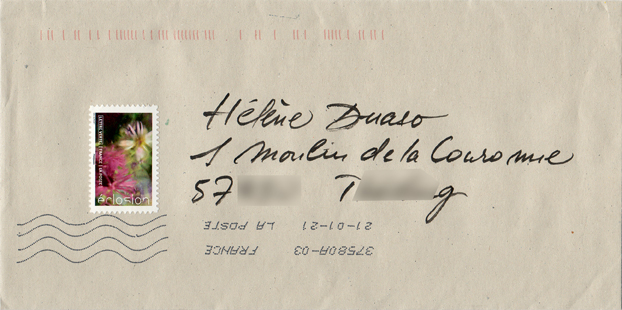 Hélène Duaso
1 Moulin de la Couronne
57 T g
éclosion
LETTRE VERTE FRANCE LA POSTE
21-01-21 LA POSTE
37580A-03 FRANCE